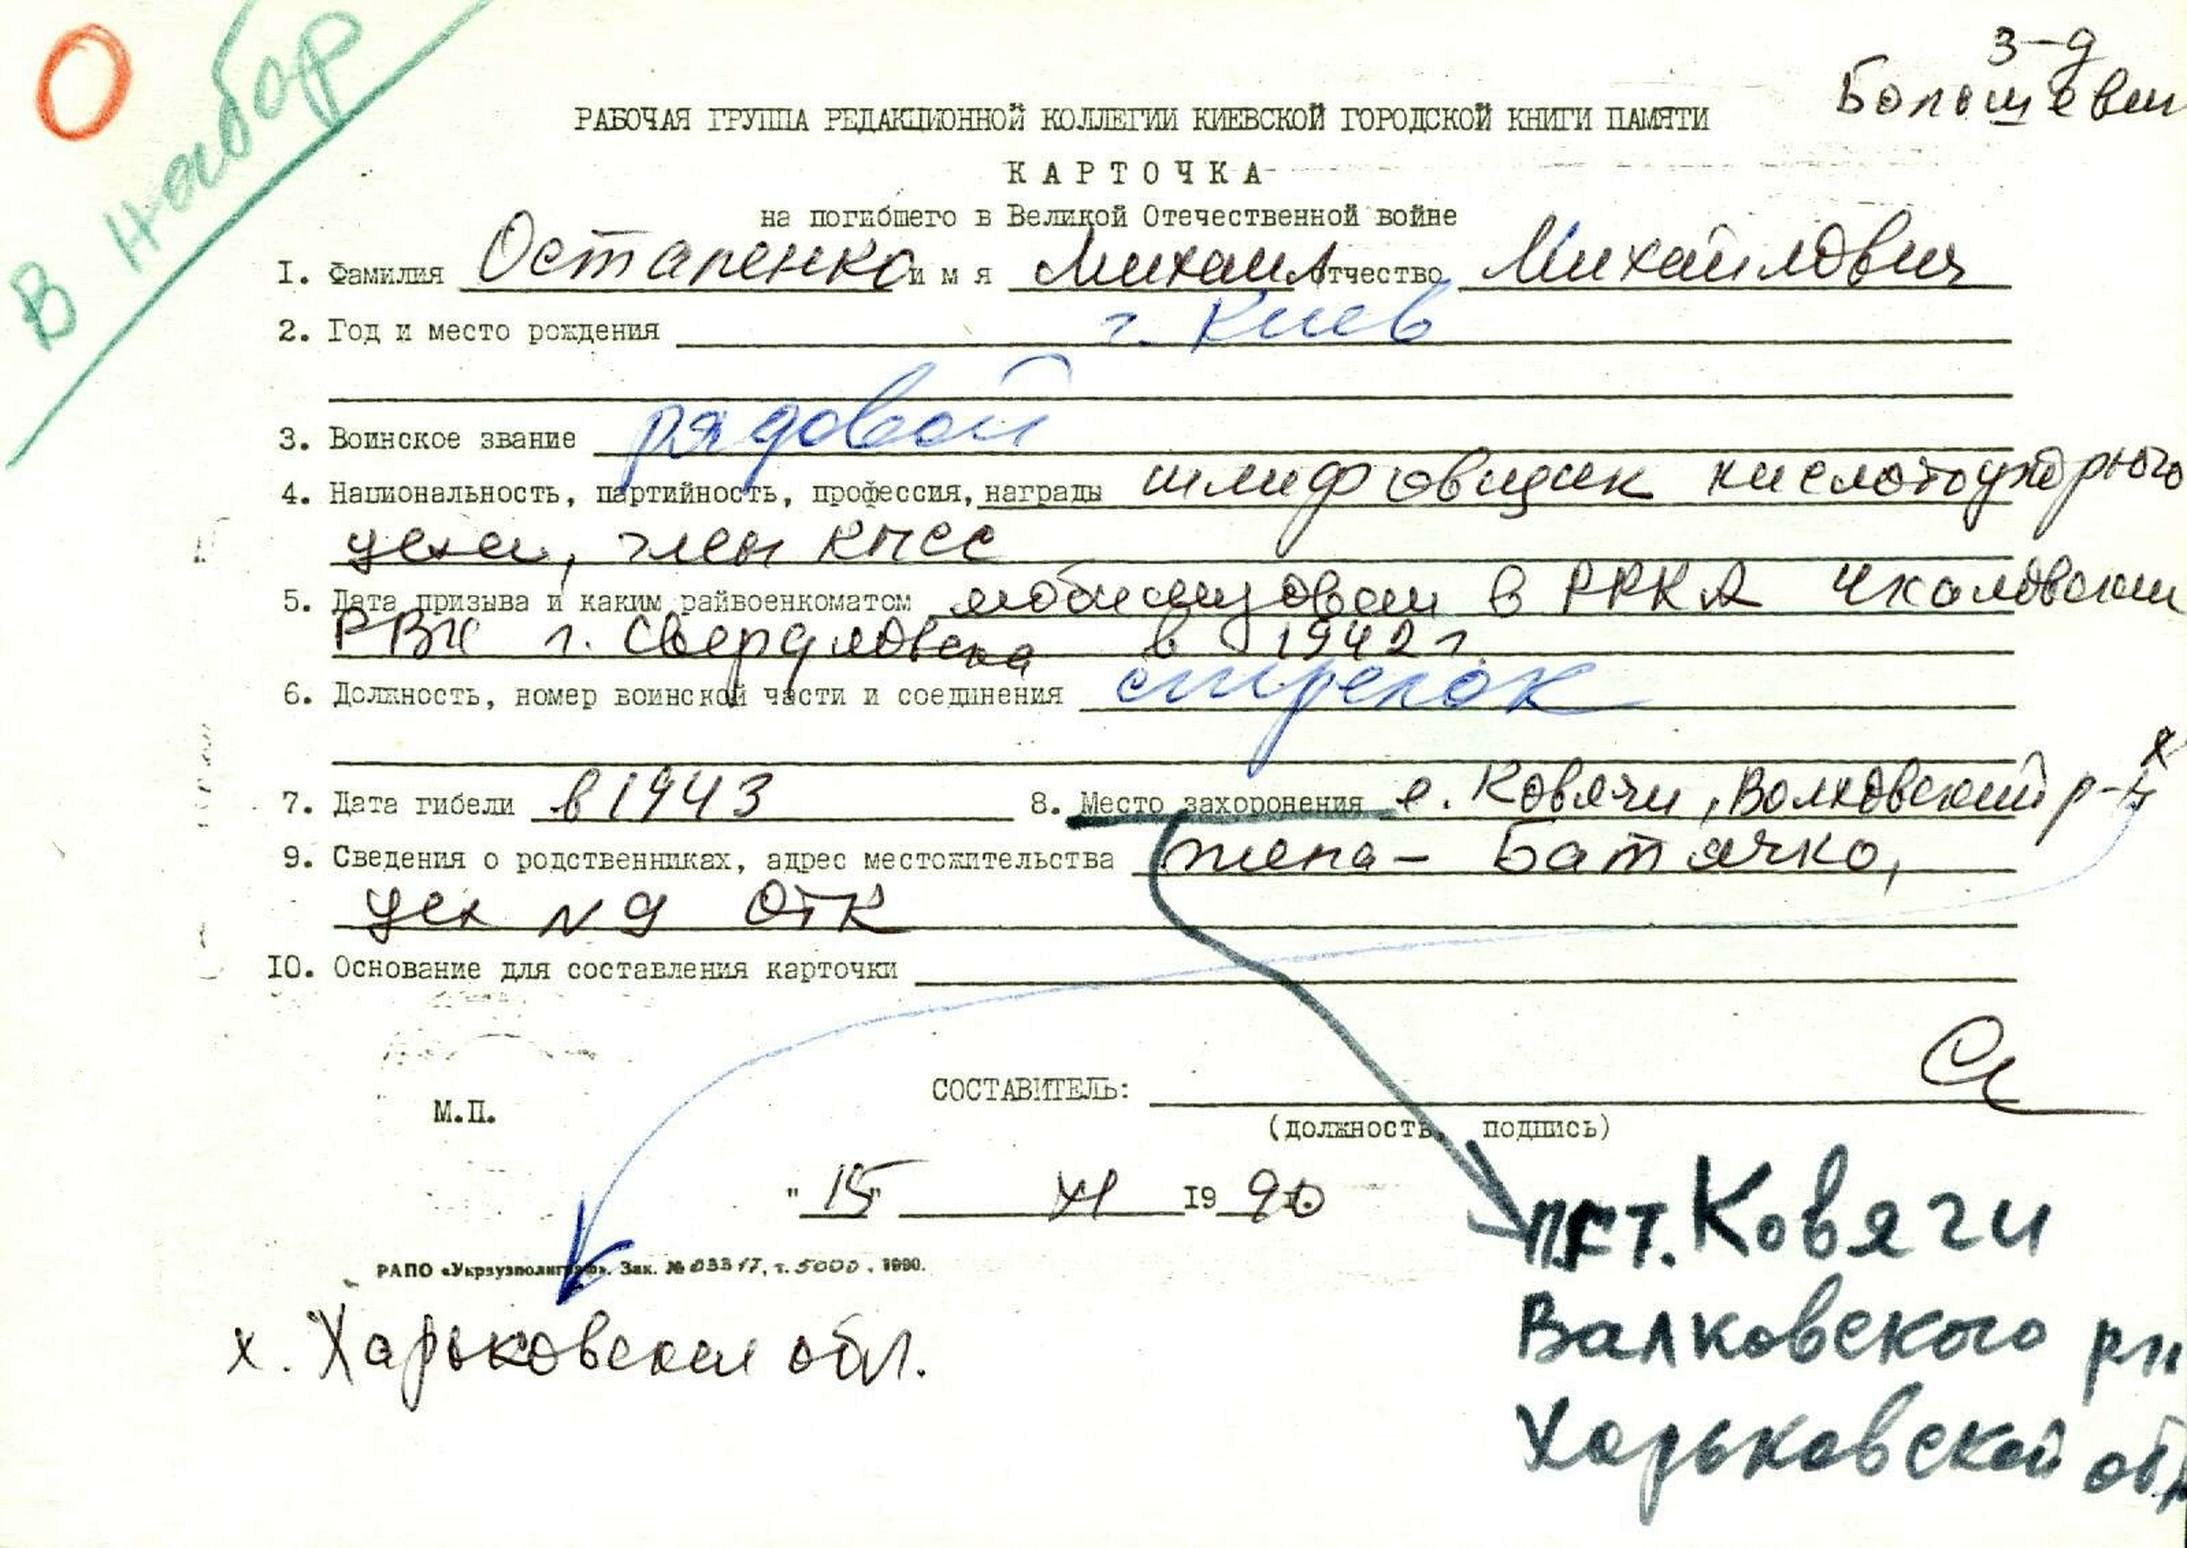 О
В набор
з-д
Большеви
РАБОЧАЯ ГРУППА РЕДАКЦИОННОЙ КОЛЛЕГИИ КИЕВСКОЙ ГОРОДСКОЙ КНИГИ ПАМЯТИ
КАРТОЧКА
на погибшего в Великой Отечественной войне
1. Фамилия Остапенко имя Михаил отчество Михайлович
2. Год и место рождения г. Киев
3. Воинское звание рядовой
4. Национальность, партийность, профессия, награды шлифовщик кислотоупорного
цеха, член КПСС
5. Дата призыва и каким райвоенкоматом мобилизован в РККА Чкаловским
РВК г. Свердловска в 1942 г.
6. Должность, номер воинской части и соединения стрелок
7. Дата гибели в 1943 8. Место захоронения с. Ковячи, Волковский р-н х
9. Сведения о родственниках, адрес местожительства жена - Батячко,
цех N 9 ОТК
10. Основание для составления карточки
СОСТАВИТЕЛЬ:
М.П.
(должность, подпись)
"15" XI 1990
РАПО «Укрвузполиграф». Зак. № 03317, т. 5000. 1990.
х. Харьковская обл.
пгт. Ковяги
Валковского рн
Харьковской обл